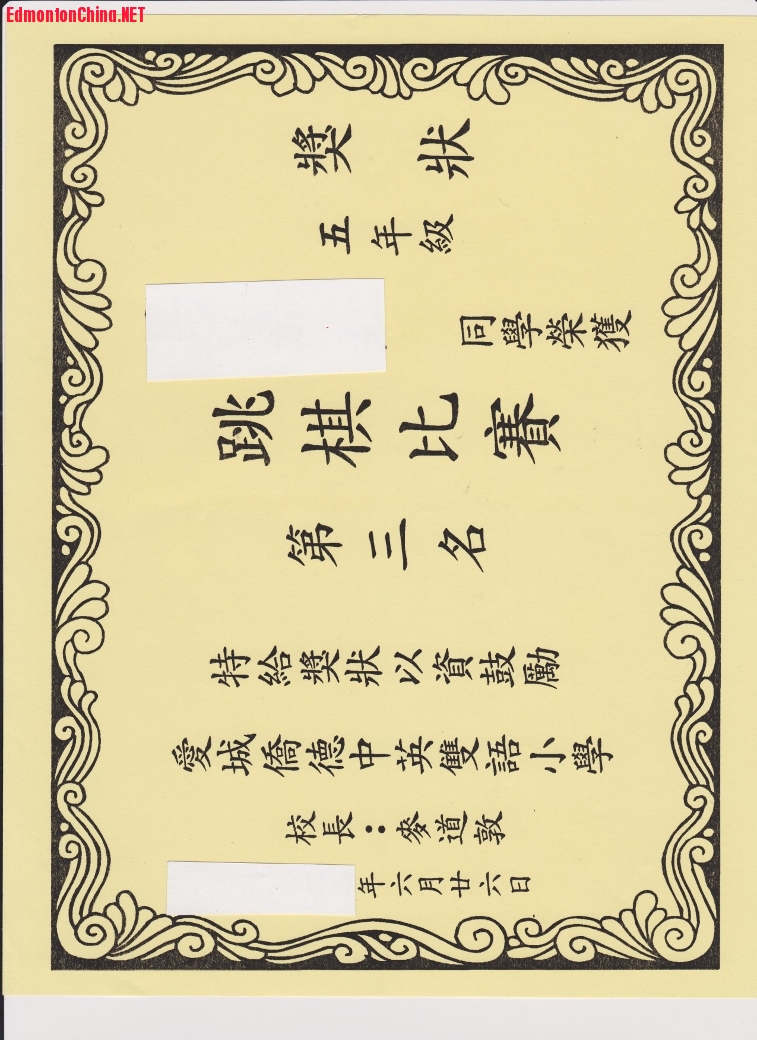 EdmontonChina.NET
獎狀
五年級
同學榮獲
跳棋比賽
第三名
特給獎狀以資鼓勵
愛城僑德中英雙語小學
校長：麥道敦
年六月廿六日